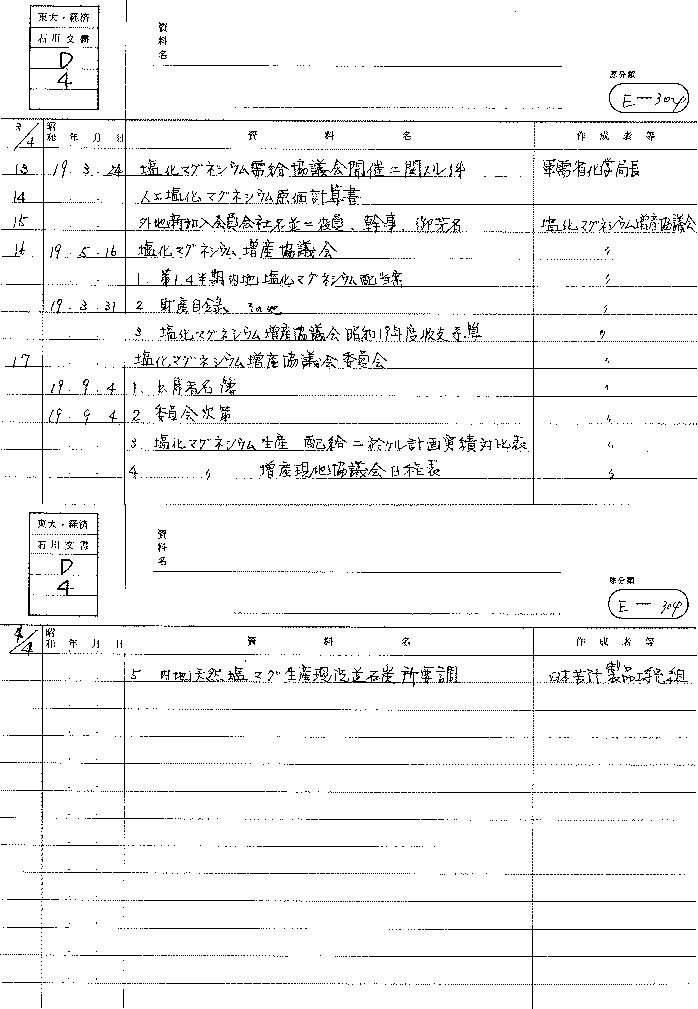 東大・経済
石川文書
D
4
資料名
原分類
E-304
3/4
昭和 年 月 日 資料名 作成者等
13 19・3・24 塩化マグネシウム需給協議会開催ニ関スル件 軍需省化学局長
14 人工塩化マグネシウム原価計算書
15 外地新加入会員会社名並ニ役員、幹事、御芳名 塩化マグネシウム増産協議会
16 19・5・16 塩化マグネシウム増産協議会 〃
1. 第1.4半期内地塩化マグネシウム配当案 〃
19・3・31 2 財産目録、その他 〃
3 塩化マグネシウム増産協議会昭和19年度収支予算 〃
17 塩化マグネシウム増産協議会委員会 〃
19・9・4 1. 出席者名簿 〃
19・9・4 2 委員会次第 〃
3 塩化マグネシウム生産 配給ニ於ケル計画実績対比表 〃
4 〃 増産現地協議会日程表 〃
東大・経済
石川文書
D
4
資料名
原分類
E-304
4/4
昭和 年 月 日 資料名 作成者等
5 内地天然塩マグ生産現況並石炭所要調 日本苦汁製品